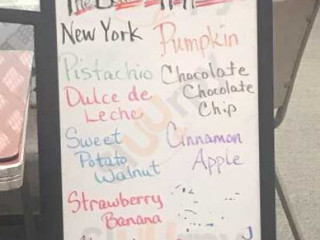 New York
Pumpkin
Pistachio
Chocolate
Chocolate
Chip
Dulce de
Leche
Sweet
Potato
Walnut
Cinnamon
Apple
Strawberry
Banana